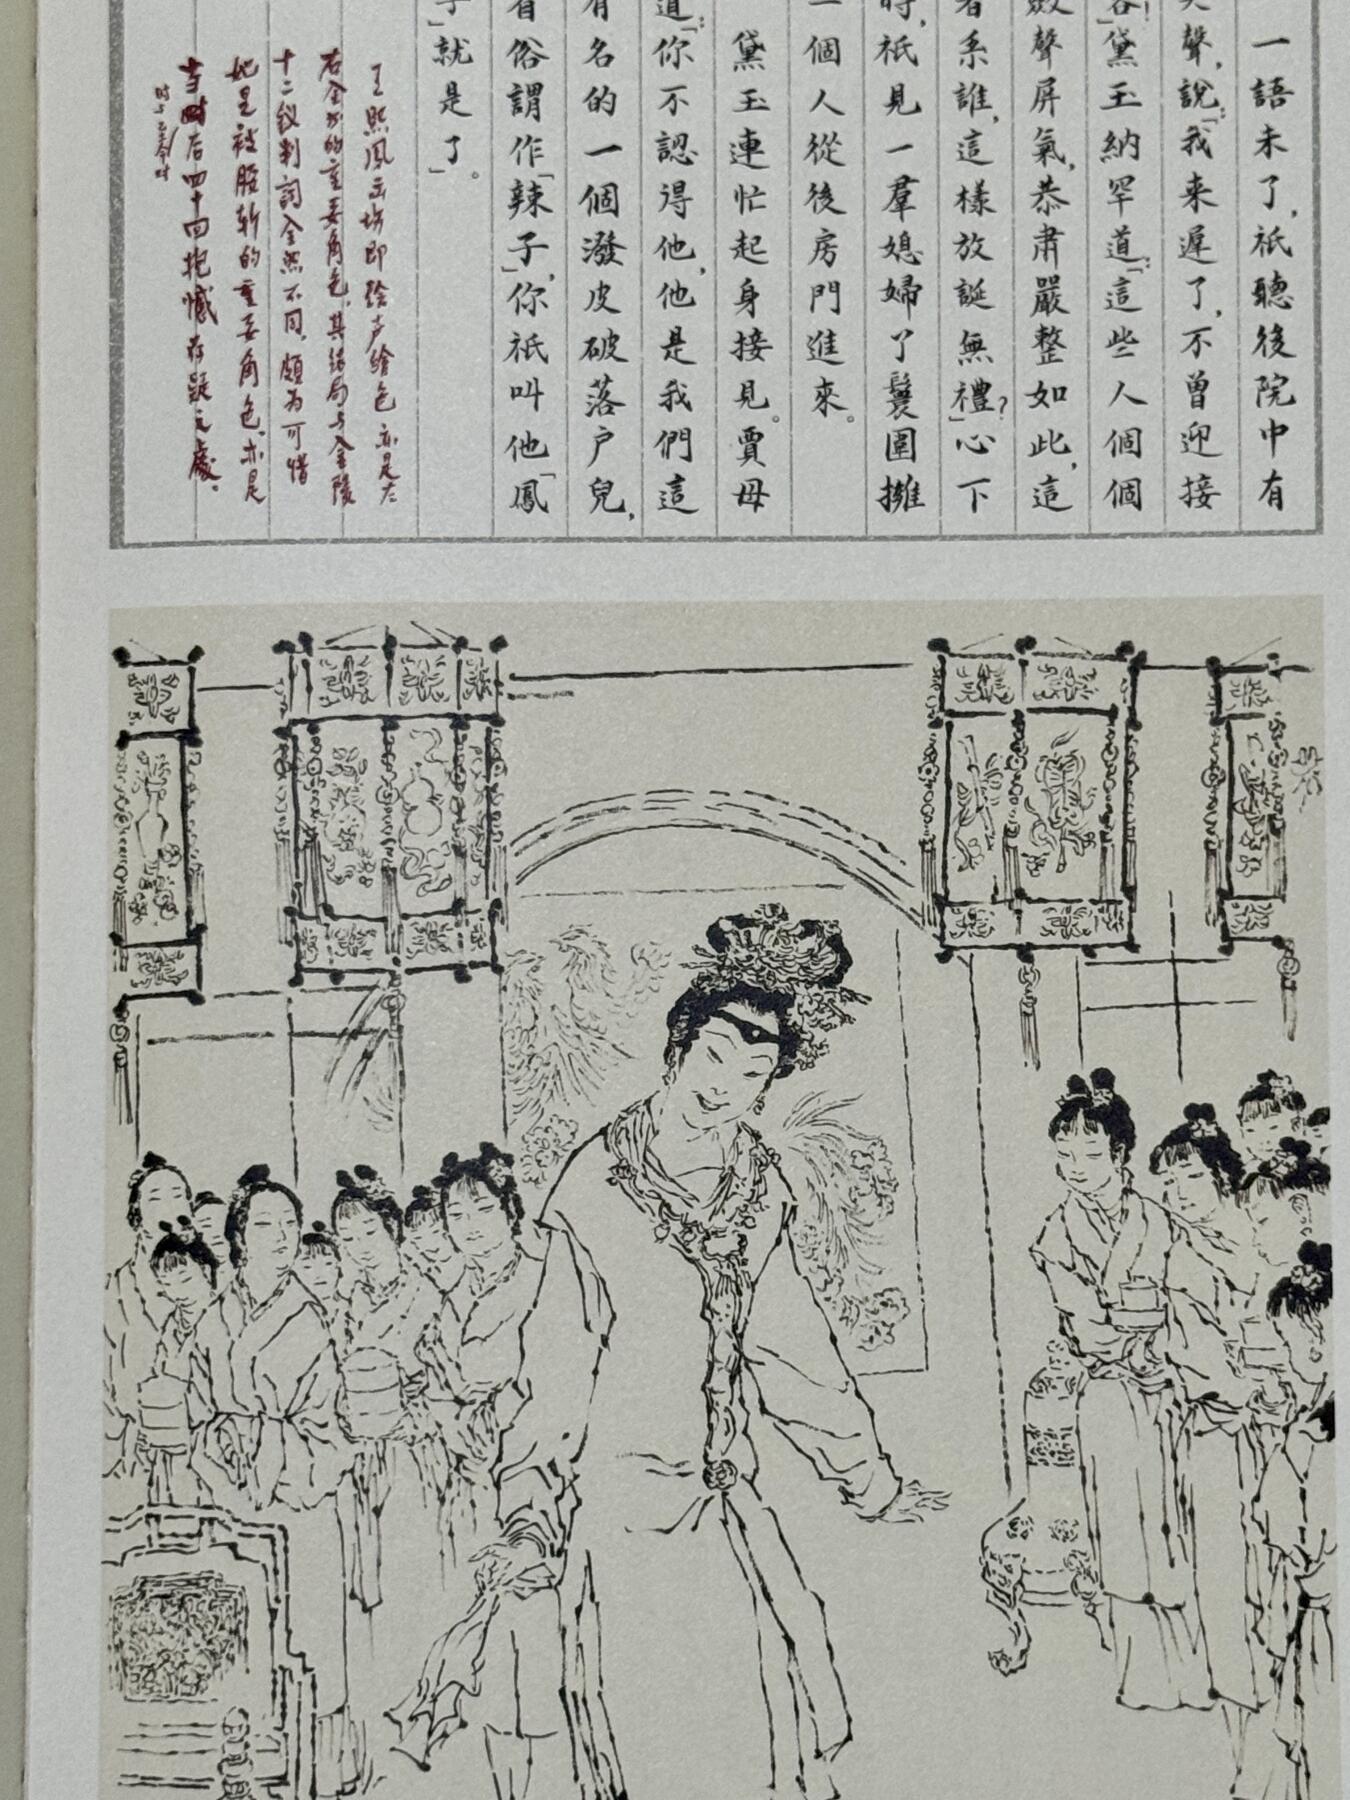 一語未了，祇聽後院中有
笑聲，說：「我来遲了，不曾迎接
客！」黛玉納罕道：「這些人個個
斂聲屏氣，恭肅嚴整如此，這
者系誰，這樣放誕無禮？」心下
時，祇見一羣媳婦丫鬟圍擁
一個人從後房門進來。
黛玉連忙起身接見。賈母
道：「你不認得他，他是我們這
有名的一個潑皮破落户兒，
省俗謂作「辣子」，你祇叫他「鳳
子」就是了」。
王熙凤出场即绘声绘色亦是左
右全书的重要角色，其结局与金陵
十二钗判词全然不同，颇为可惜
她是被腰斩的重要角色，亦是
后四十回抱憾存疑之處。